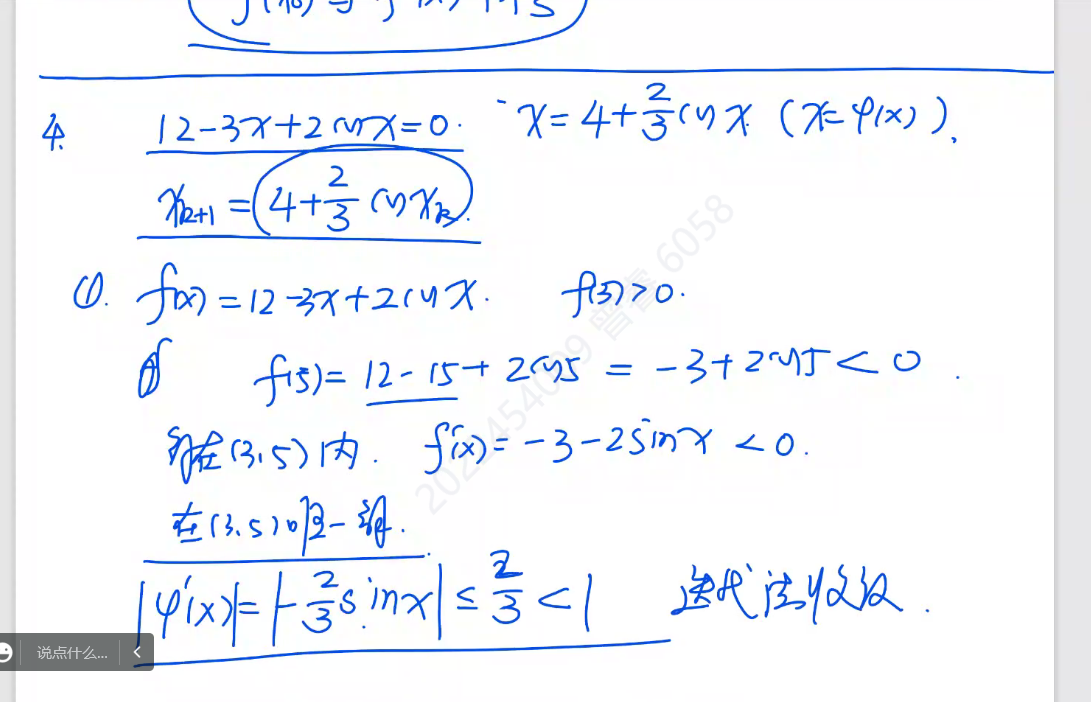 4. 12-3x+2cosx=0. x=4+2/3 cosx (x=φ(x)).
x_{k+1}=4+2/3 cosx_k.
(1). f(x)=12-3x+2cosx. f(3)>0.
f(5)=12-15+2cos5=-3+2cos5<0.
在(3,5)内. f'(x)=-3-2sinx<0.
在(3,5)内-解.
|φ'(x)|=|-2/3 sinx|≤2/3<1 迭代法收敛.
说点什么...